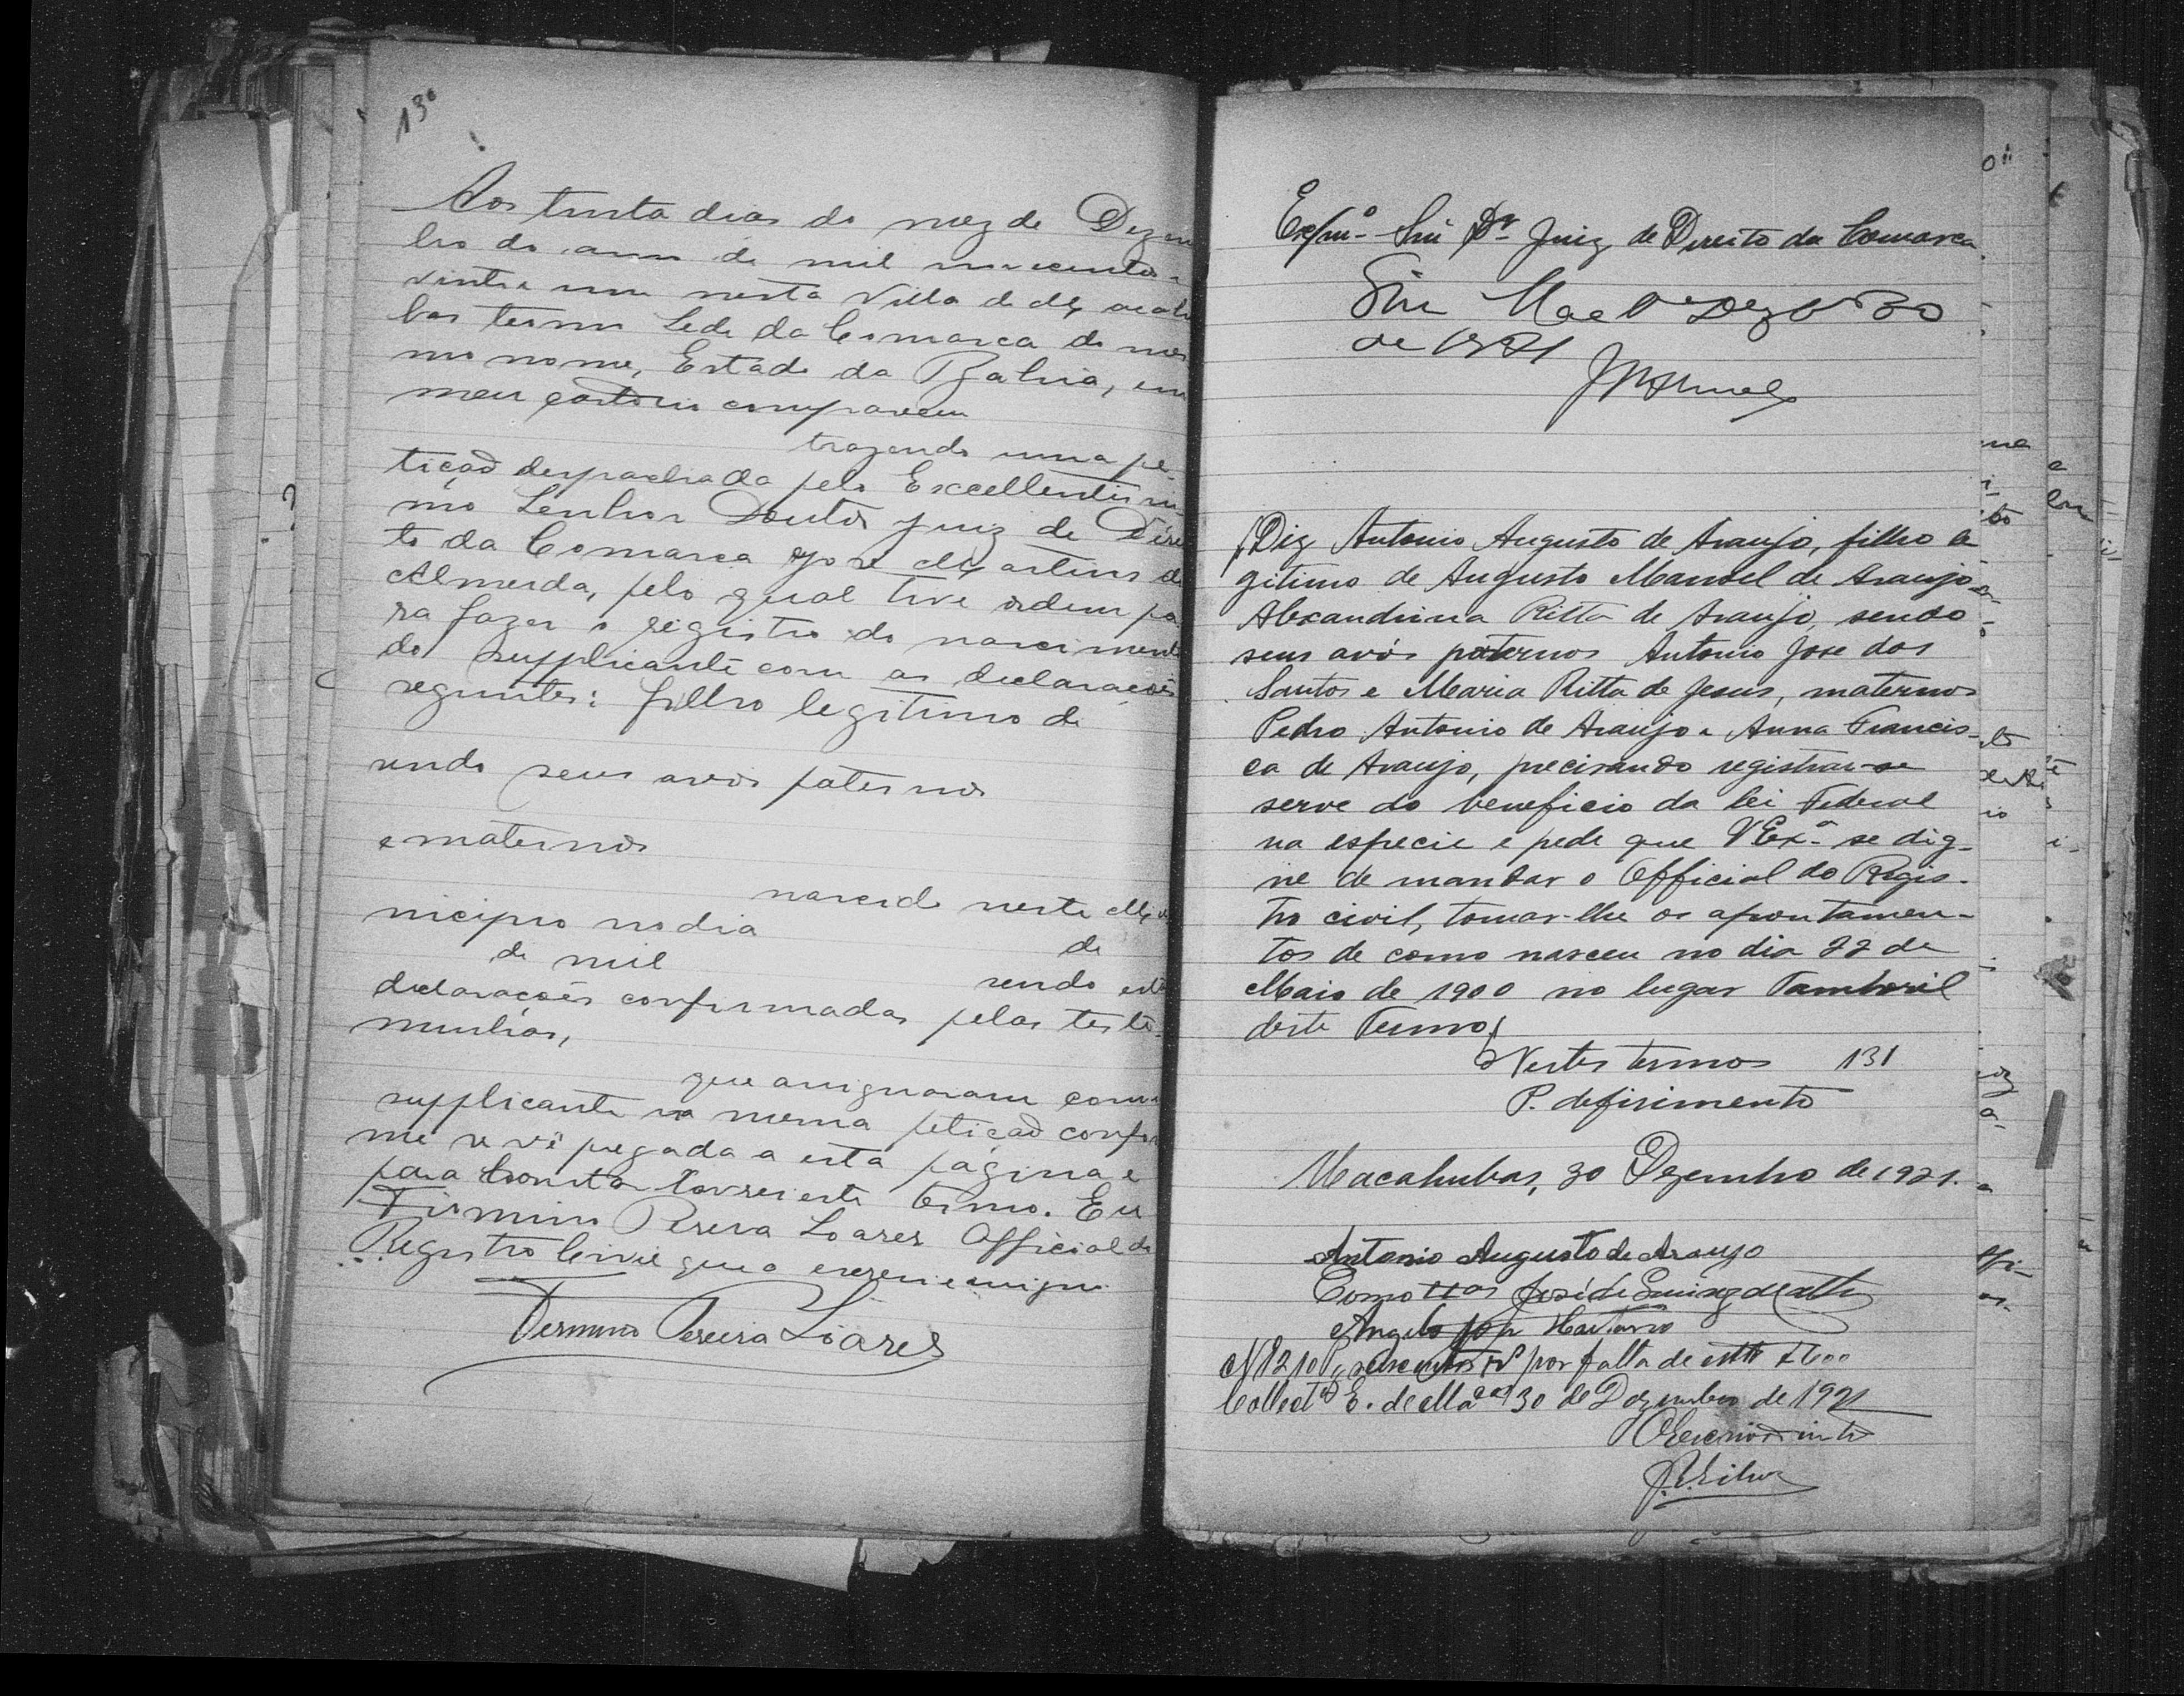 130
Aos trinta dias do mez de Dezem
bro do anno de mil novecentos e
vinte e um nesta Villa de Macahu
bas termo Sede da Comarca do mes
mo nome, Estado da Bahia, em
meu cartorio compareceu
trazendo uma pe-
tição despachada pelo Excellentissi-
mo Senhor Doutor Juiz de Direi
to da Comarca José Martins de
Almeida, pelo qual tive ordem pa
ra fazer o registro do nascimento
do supplicante com as declarações
seguintes: filho legitimo de
sendo seus avós paternos
e maternos
nascido neste Mu
nicipio no dia
de
de mil
sendo esta
declarações confirmadas pelas teste-
munhas,
que assignaram com o
supplicante na mesma petição confor
me se vê pregada a esta página e
para constar lavrei este termo. Eu
Firmino Pereira Soares Official do
Registro Civil que o escrevi e assigno
Firmino Pereira Soares
Exmo. Snr. Dr. Juiz de Direito da Comarca
Sim Dezbro 30
de 1921
Diz Antonio Augusto de Araujo, filho le
gitimo de Augusto Manoel de Araujo e
Alexandrina Ritta de Araujo, sendo
seus avós paternos Antonio Jose dos
Santos e Maria Ritta de Jesus, maternos
Pedro Antonio de Araujo e Anna Francis-
ca de Araujo, precisando registrar-se
serve do beneficio da lei Federal
na especie e pede que VExa. se dig-
ne de mandar o Official do Regis-
tro civil, tomar-lhe os apontamen-
tos de como nasceu no dia 22 de
Maio de 1900 no lugar Tamboril
deste Termo.
Nestes termos 131
P. deferimento
Macahubas, 30 Dezembro de 1921.
Antonio Augusto de Araujo
Como ttas José de
Angelo
N 1210 seiscentos rs por falta de estte $600
Collectª E. de Macas 30 de Dezembro de 1921
O Escrivão intº